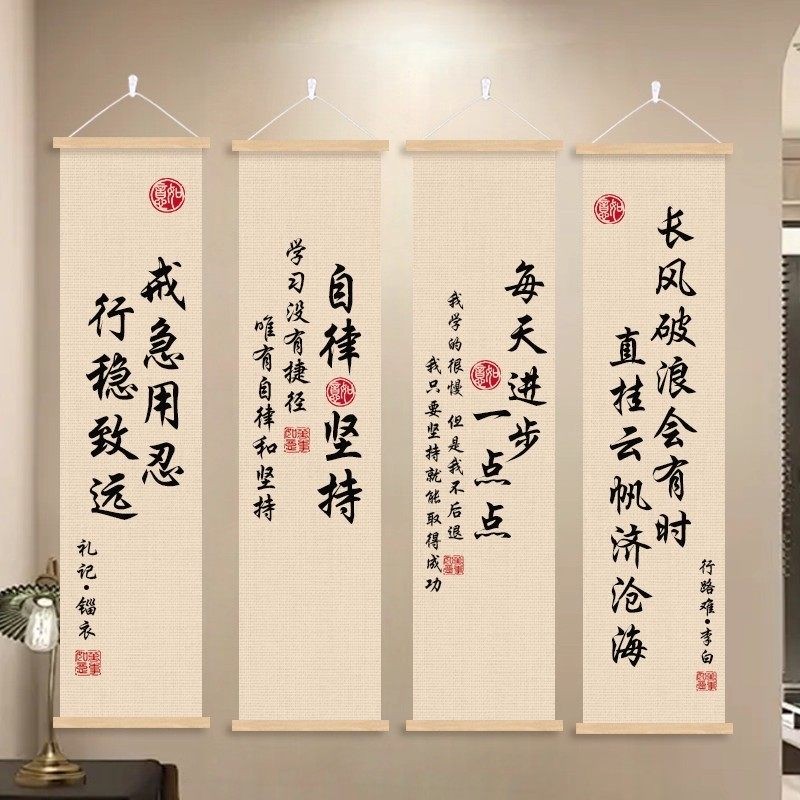 如意
戒急用忍
行稳致远
礼记•锱衣
自律
如意
坚持
学习没有捷径
唯有自律和坚持
每天进步
如意
一点点
我学的很慢 但是我不后退
我只要坚持就能取得成功
如意
长风破浪会有时
直挂云帆济沧海
行路难•李白